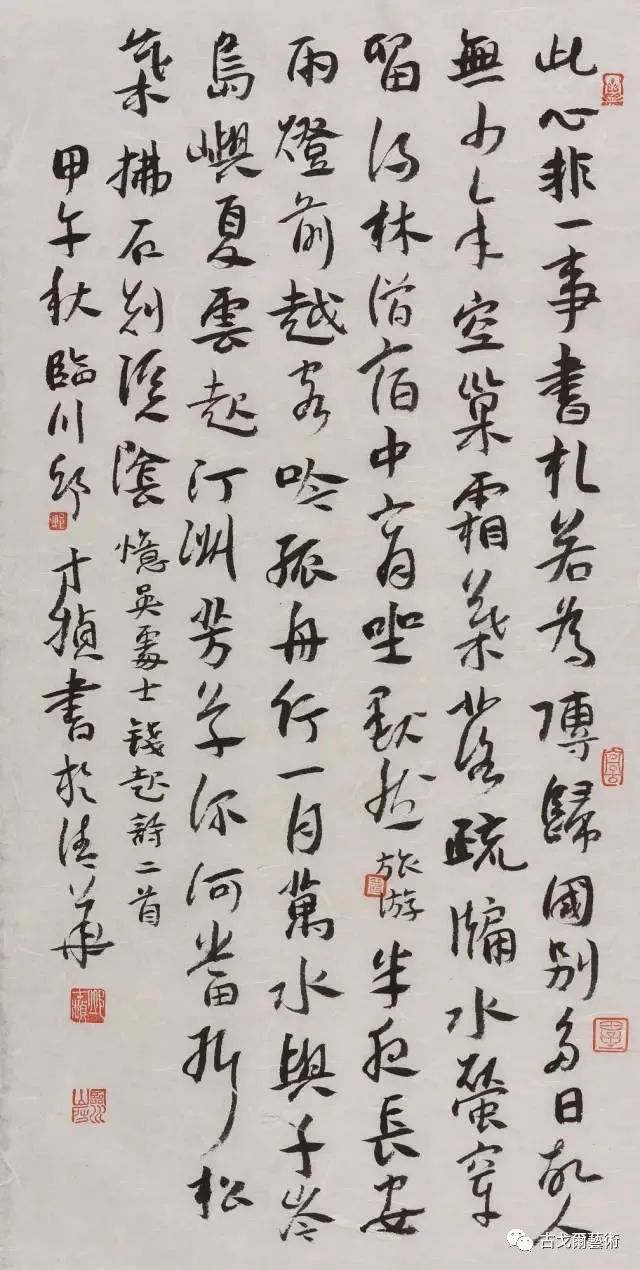 此心非一事書札若為傳歸國別多日故人
無少年空巢霜葉落疏牖水螢穿
留得林僧宿中宵坐默然 旅游 半夜長安
雨燈前越客吟孤舟行一月萬水與千岑
島嶼夏雲起汀洲芳草深何當折松
葉拂石剡溪陰 憶吳處士 錢起詩二首
甲午秋臨川邱才楨書於清華
古戈爾藝術